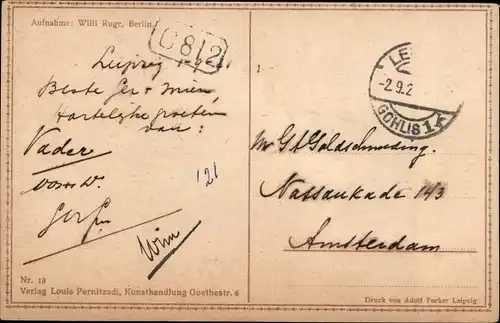 Aufnahme: Willi Ruge, Berlin.
C 812
Leipzig
Beste Ger + Mien,
Hartelijke groeten
van:
Vader
Wim
'21
Nr. 18
Verlag Louis Pernitzsch, Kunsthandlung Goethestr. 6
LE
-2.9.2
GOHLIS 1
Goldschmeding.
Nassaukade 143
Amsterdam
Druck von Adolf Forker Leipzig